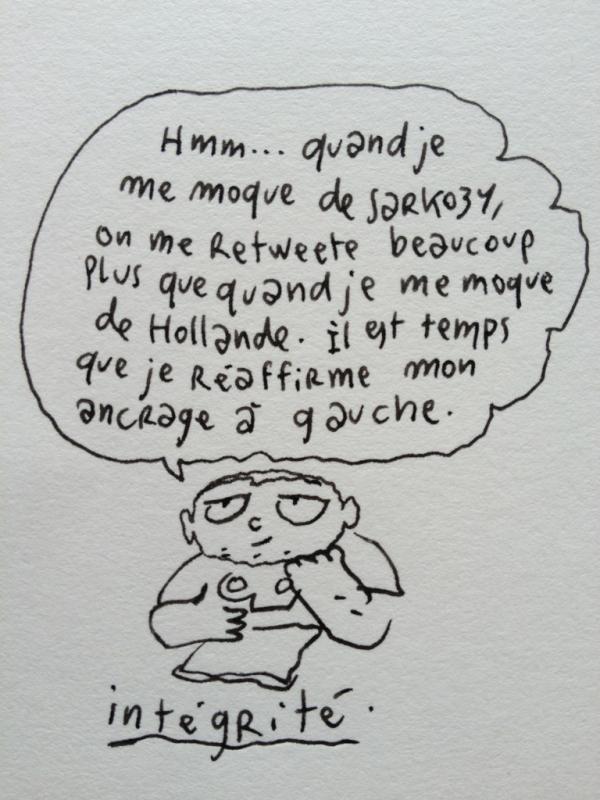 Hmm... quand je
me moque de Sarkozy,
on me Retweete beaucoup
plus que quand je me moque
de Hollande. il est temps
que je Réaffirme mon
ancrage à gauche.
intégrité.